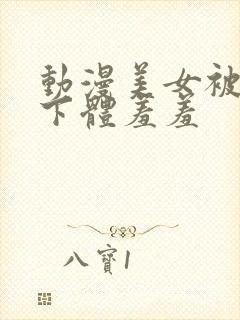 動漫美女被
下體羞羞
八寶1